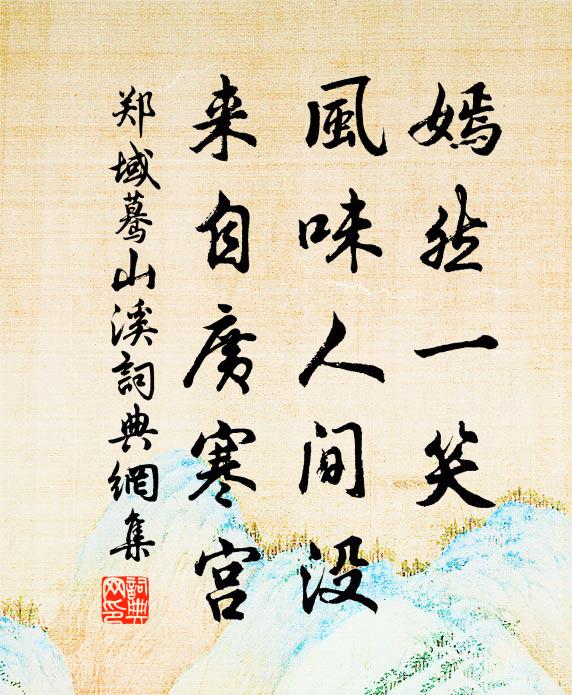 嫣然一笑
風味人间没
来自廣寒宫
郑域驀山溪詞典網集
詞典网印